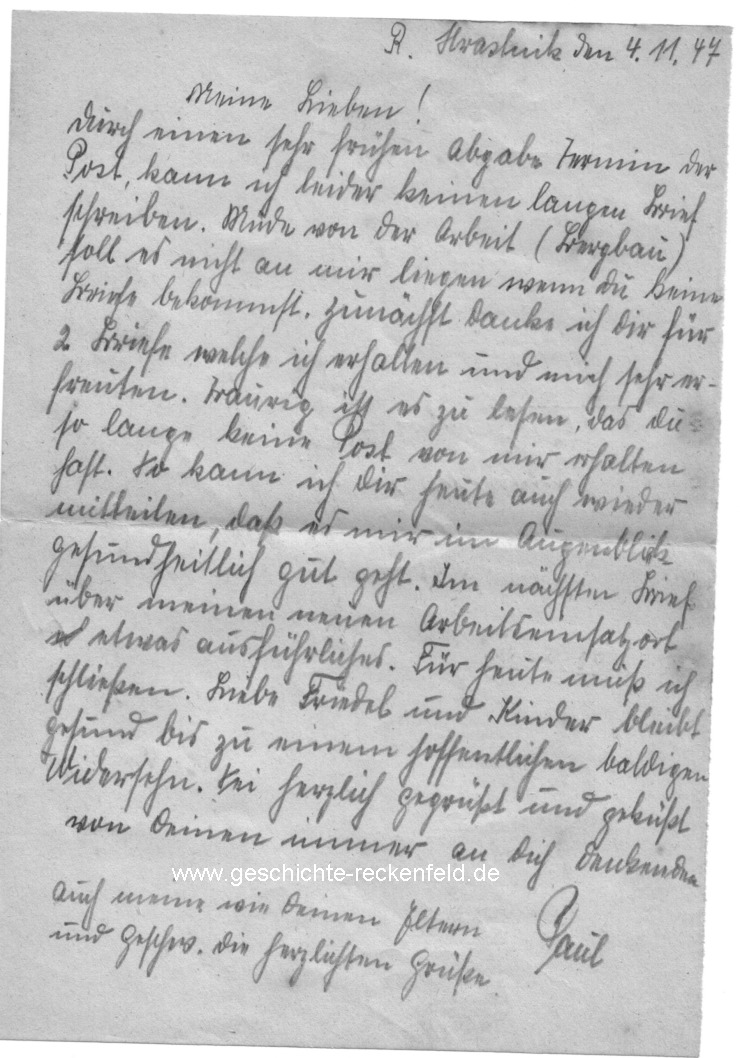 R. Hrastnik den 4.11.47
Meine Lieben!
Durch einen sehr frühen Abgabe Termin der
Post, kann ich leider keinen langen Brief
schreiben. Müde von der Arbeit (Bergbau)
soll es nicht an mir liegen wenn du keine
Briefe bekommst. Zunächst danke ich dir für
2 Briefe welche ich erhalten und mich sehr er-
freuten. Traurig ist es zu lesen, das du
so lange keine Post von mir erhalten
hast. So kann ich dir heute auch wieder
mitteilen, daß es mir im Augenblick
gesundheitlich gut geht. Im nächsten Brief
über meinen neuen Arbeitseinsatzort
etwas ausführliches. Für heute muß ich
schließen. Liebe Friedel und Kinder bleibt
gesund bis zu einem hoffentlichen baldigen
Widersehn. Sei herzlich gegrüßt und geküßt
von deinen immer an dich denkenden
www.geschichte-reckenfeld.de
auch meine wie deinen Eltern Paul
und Geschw. die herzlichten Grüße.